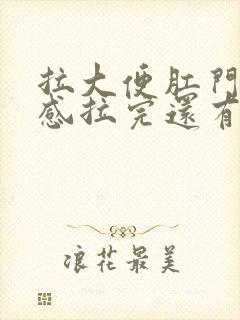 拉大便肛門
感拉完還有
浪花最美